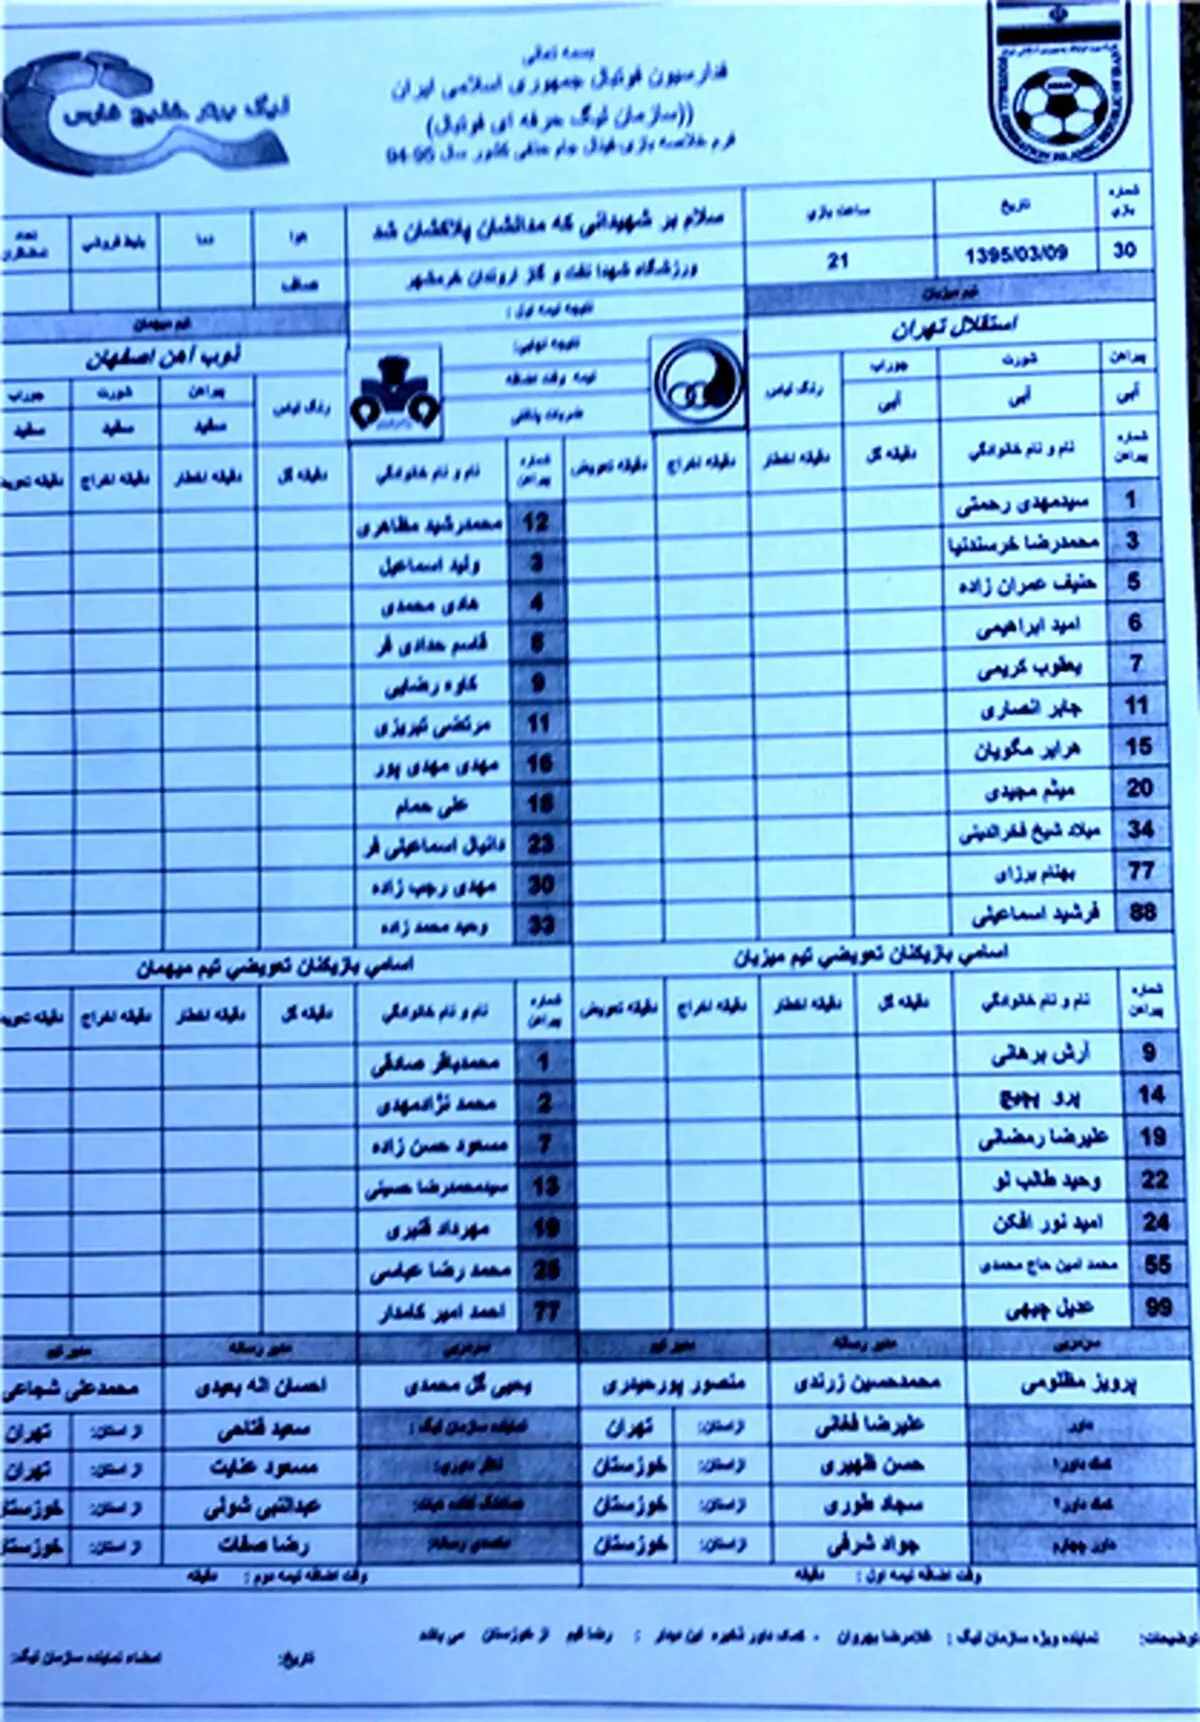 بسمه تعالی
فدراسیون فوتبال جمهوری اسلامی ایران
((سازمان لیگ حرفه ای فوتبال)
فرم خلاصه بازی فینال جام حذفی کشور سال 95-94
لیگ برتر خلیج فارس
شماره بازی تاریخ ساعت بازی سلام بر شهیدانی که مدالشان پلاکشان شد هوا دما بلیط فروشی تعداد تماشاگران
30 1395/03/09 21 ورزشگاه شهدا نفت و گاز اروندان خرمشهر صاف
تیم میزبان نتیجه نیمه اول : تیم میهمان
استقلال تهران نتیجه نهایی: ذوب آهن اصفهان
پیراهن شورت جوراب رنگ لباس نیمه وقت اضافه رنگ لباس پیراهن شورت جوراب
آبی آبی آبی ضربات پنالتی سفید سفید سفید
شماره پیراهن نام و نام خانوادگی دقیقه گل دقیقه اخطار دقیقه اخراج دقیقه تعویض شماره پیراهن نام و نام خانوادگی دقیقه گل دقیقه اخطار دقیقه اخراج دقیقه تعویض
1 سیدمهدی رحمتی 12 محمدرشید مظاهری
3 محمدرضا خرسندنیا 3 ولید اسماعیل
5 حنیف عمران زاده 4 هادی محمدی
6 امید ابراهیمی قاسم حدادی فر
7 یعقوب کریمی 9 کاوه رضایی
11 جابر انصاری 11 مرتضی تبریزی
15 هرایر مگویان 16 مهدی مهدی پور
20 میثم مجیدی علی حمام
34 میلاد شیخ فخرالدینی 23 دانیال اسماعیلی فر
77 بهنام برزای 30 مهدی رجب زاده
88 فرشید اسماعیلی 33 وحید محمد زاده
اسامی بازیکنان تعویضی تیم میزبان اسامی بازیکنان تعویضی تیم میهمان
شماره پیراهن نام و نام خانوادگی دقیقه گل دقیقه اخطار دقیقه اخراج دقیقه تعویض شماره پیراهن نام و نام خانوادگی دقیقه گل دقیقه اخطار دقیقه اخراج دقیقه تعویض
9 آرش برهانی 1 محمدباقر صادقی
14 پرو پجیچ 2 محمد نژادمهدی
19 علیرضا رمضانی 7 مسعود حسن زاده
22 وحید طالب لو 13 سیدمحمدرضا حسینی
24 امید نور افکن 19 مهرداد قنبری
55 محمد امین حاج محمدی محمد رضا عباسی
99 عدیل چیهی 77 احمد امیر کامدار
سرمربی مدیر رسانه مدیر تیم سرمربی مدیر رسانه مدیر تیم
پرویز مظلومی محمدحسین زرندی منصور پورحیدری یحیی گل محمدی احسان اله بعیدی محمدعلی شجاعی
داور علیرضا فغانی از استان: تهران نماینده سازمان لیگ : سعید فتاحی از استان: تهران
کمک داور۱ حسن ظهیری از استان: خوزستان ناظر داوری: مسعود عنایت از استان: تهران
کمک داور۲ سجاد طوری از استان: خوزستان هماهنگ کننده عبدالنبی شوئی از استان: خوزستان
داور چهارم جواد شرفی از استان: خوزستان متصدی رسانه: رضا صفات از استان: خوزستان
وقت اضافه نیمه اول : دقیقه وقت اضافه نیمه دوم : دقیقه
توضیحات: نماینده ویژه سازمان لیگ : غلامرضا بهروان - کمک داور ذخیره این دیدار : رضا قیم از خوزستان می باشد
تاریخ: امضاء نماینده سازمان لیگ: